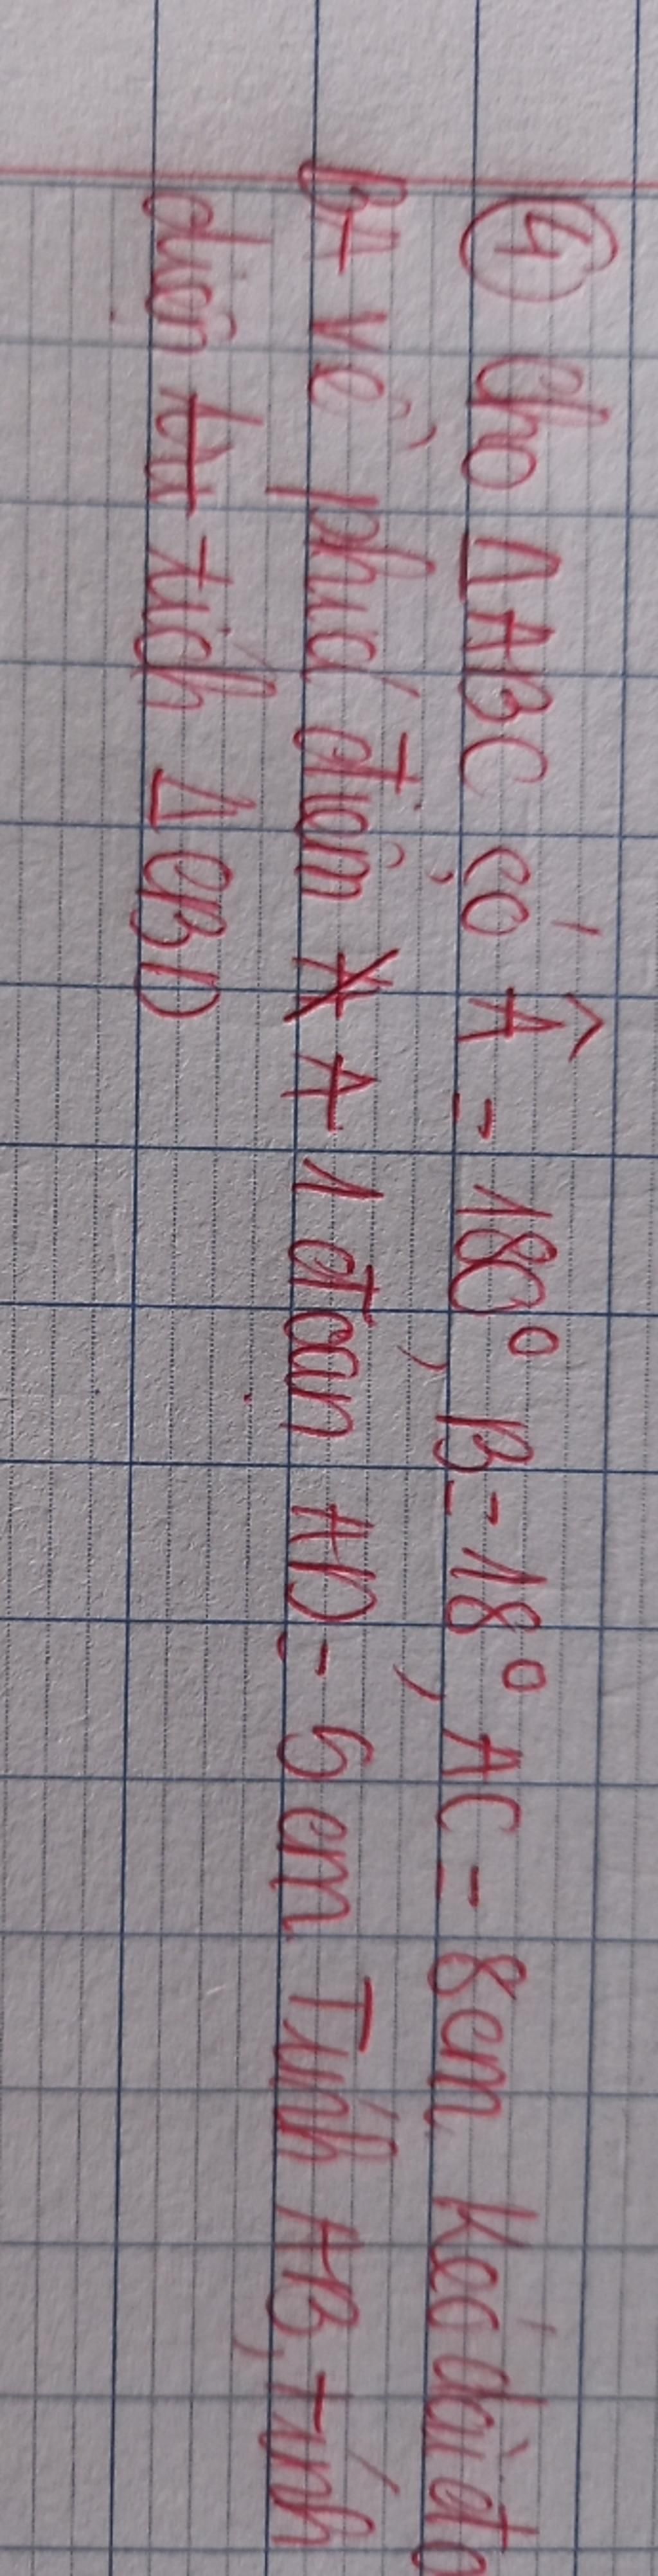 ④ Cho ΔABC có Â = 180°, B = 18°, AC = 8cm. Kéo dài đo
BA về phía điểm A 1 đoạn AD = 5 cm. Tính AB, tính
diện tích ΔCBD